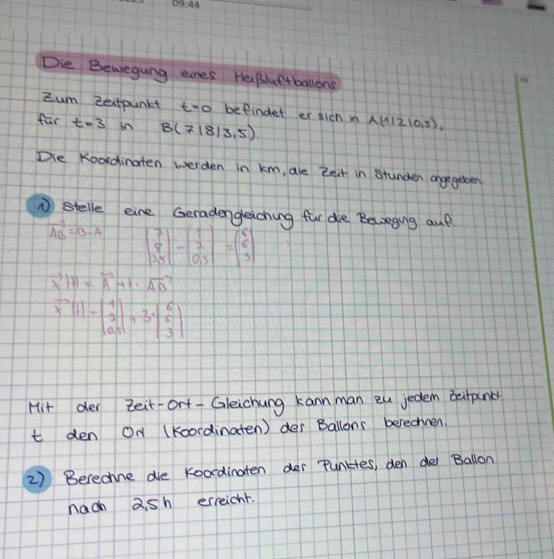 09:44
Die Bewegung eines Heißluftballons
Zum Zeitpunkt t=0 befindet er sich in A(1|2|0,5),
für t=3 in B(7|8|3,5).
Die Koordinaten werden in km, die Zeit in Stunden angegeben
1) Stelle eine Geradengleichung für die Bewegung auf.
AB = B-A (7 8 3,5) - (1 2 0,5) = (6 6 3)
x(t) = A + t · AB
x(t) = (1 2 0,5) + 3 · (6 6 3)
Mit der Zeit-Ort-Gleichung kann man zu jedem Zeitpunkt
t den Ort (Koordinaten) des Ballons berechnen.
2) Berechne die Koordinaten des Punktes, den der Ballon
nach 2,5h erreicht.